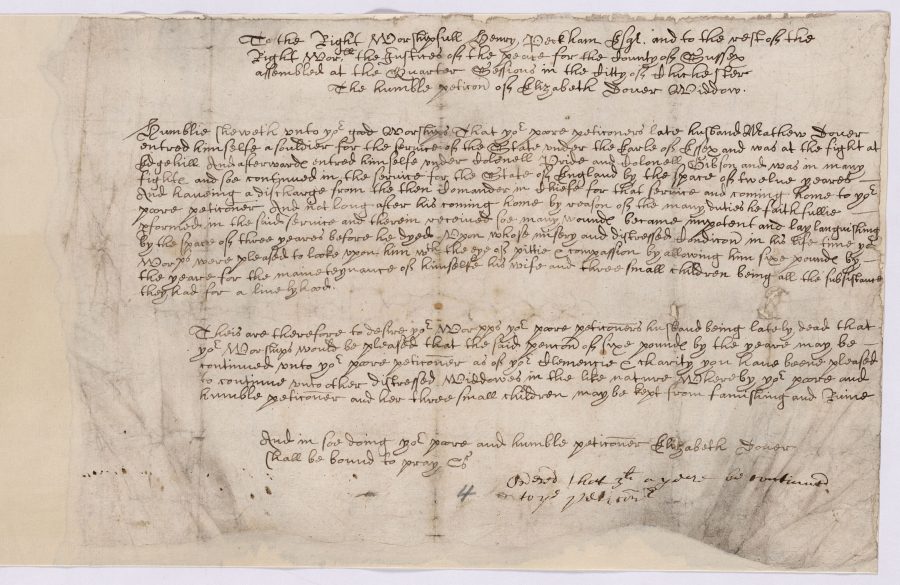 To the Right Worshipfull Henry Peckham Esqr. and to the rest of the
Right Worll the Justices of the peace for the County of Sussex
assembled at the Quarter Sessions in the Citty of Chichester
The humble peticon of Elizabeth Dover Widdow.
Humblie sheweth unto yor good Worships That yor poore peticoners late husband Mathew Dover
entred himselfe a souldier for the service of the State under the Earle of Essex and was at the fight at
Edgehill And afterwards entred himselfe under Colonell Pride and Colonell Gibson and was in many
fights and soe continued in the service for the State of England by the space of twelve yeares
And haveing a discharge from the then Comander in Chiefe for that service and coming home to yor
poore peticoner And not long after his coming home by reason of the many duties he faithfullie
pformed in the said service and therein received soe many wounds became impotent and lay languishing
by the space of three yeares before he dyed Upon whose misery and distressed Condicon in his life time yor
Worpps were pleased to looke upon him wth the eye of pittie & Compassion by allowing him sixe pounds by
the yeare for the mainteynance of himselfe his wife and three small children being all the subsistance
they had for a livelyhood.
Theis are therefore to desire yor Worpps yor poore peticoners husband being lately dead that
yor Worships would be pleased that the said pencon of sixe pounds by the yeare may be
continued unto yor poore peticoner as of yor Clemencie & charity you have beene pleased
to continue unto other distressed Widdowes in the like nature Whereby yor poore and
humble peticoner and her three small children may be kept from famishing and Ruine
And in soe doing yor poore and humble peticoner Elizabeth Dover
shall be bound to pray &c
Ordered that 3l a yeare be continued
to ye peticonr
4